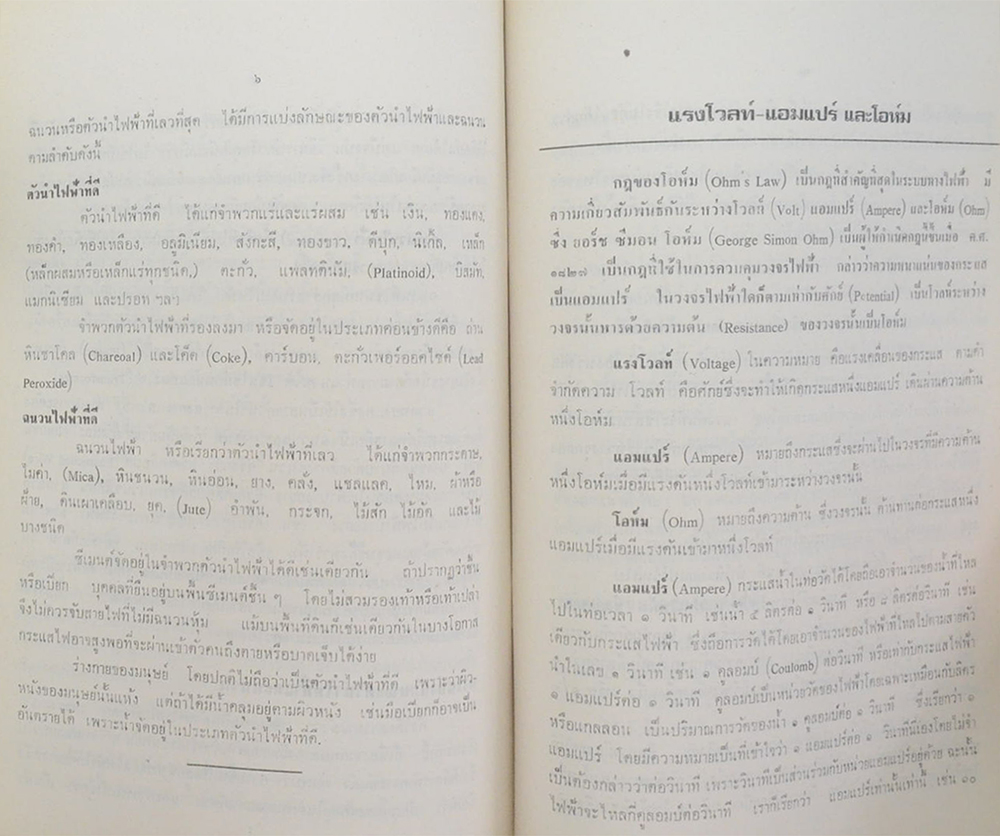 ๖
ฉนวนหรือตัวนำไฟฟ้าที่เลวที่สุด ได้มีการแบ่งลักษณะของตัวนำไฟฟ้าและฉนวน
ตามลำดับดังนี้
ตัวนำไฟฟ้าที่ดี
ตัวนำไฟฟ้าที่ดี ได้แก่จำพวกแร่และแร่ผสม เช่น เงิน, ทองแดง,
ทองคำ, ทองเหลือง, อลูมิเนียม, สังกะสี, ทองขาว, ดีบุก, นิเกิ้ล, เหล็ก
(เหล็กผสมหรือเหล็กแร่ทุกชนิด,) ตะกั่ว, แพลททินัม, (Platinoid), บิสมัท,
แมกนิเซียม และปรอท ฯลฯ
จำพวกตัวนำไฟฟ้าที่รองลงมา หรือจัดอยู่ในประเภทค่อนข้างดีคือ ถ่าน
หินชาโคล (Chareoal) และโค๊ต (Coke), คาร์บอน, ตะกั่วเพอร์ออคไซค์ (Lead
Peroxide)
ฉนวนไฟฟ้าที่ดี
ฉนวนไฟฟ้า หรือเรียกว่าตัวนำไฟฟ้าที่เลว ได้แก่จำพวกกระดาษ,
ไมก้า, (Mica), หินชนวน, หินอ่อน, ยาง, คลั่ง, แชลแลค, ไหม, ผ้าหรือ
ฝ้าย, ดินเผาเคลือบ, ยุค, (Jute) อำพัน, กระจก, ไม้สัก ไม้อัด และไม้
บางชนิด
ซีเมนต์จัดอยู่ในจำพวกตัวนำไฟฟ้าได้ดีเช่นเดียวกัน ถ้าปรากฏว่าชื้น
หรือเปียก บุคคลที่ยืนอยู่บนพื้นซีเมนต์ชื้น ๆ โดยไม่สวมรองเท้าหรือเท้าเปล่า
จึงไม่ควรจับสายไฟที่ไม่มีฉนวนหุ้ม แม้บนพื้นที่ดินก็เช่นเดียวกันในบางโอกาส
กระแสไฟอาจสูงพอที่จะผ่านเข้าตัวคนถึงตายหรือบาดเจ็บได้ง่าย
ร่างกายของมนุษย์ โดยปกติไม่ถือว่าเป็นตัวนำไฟฟ้าที่ดี เพราะว่าผิว-
หนังของมนุษย์นั้นแห้ง แต่ถ้าได้มีน้ำคลุมอยู่ตามผิวหนัง เช่นมือเปียกก็อาจเป็น
อันตรายได้ เพราะน้ำจัดอยู่ในประเภทตัวนำไฟฟ้าที่ดี.
แรงโวลท์-แอมแปร์ และโอห์ม
กฎของโอห์ม (Ohm's Law) เป็นกฎที่สำคัญที่สุดในระบบทางไฟฟ้า มี
ความเกี่ยวสัมพันธ์กันระหว่างโวลต์ (Volt) แอมแปร์ (Ampere) และโอห์ม (Ohm)
ซึ่ง ยอร์ช ซีมอน โอห์ม (George Simon Ohm) เป็นผู้ให้กำเนิดกฎนี้ขึ้นเมื่อ ค.ศ.
๑๘๒๗ เป็นกฎที่ใช้ในการควบคุมวงจรไฟฟ้า กล่าวว่าความหนาแน่นของกระแส
เป็นแอมแปร์ ในวงจรไฟฟ้าใดก็ตามเท่ากับศักย์ (Potential) เป็นโวลน์ระหว่าง
วงจรนั้นหารด้วยความต้น (Resistance) ของวงจรนั้นเป็นโอห์ม
แรงโวลท์ (Voltage) ในความหมาย คือแรงเคลื่อนของกระแส ตามคำ
จำกัดความ โวลท์ คือศักย์ซึ่งจะทำให้เกิดกระแสหนึ่งแอมแปร์ เดินผ่านความต้าน
หนึ่งโอห์ม
แอมแปร์ (Ampere) หมายถึงกระแสซึ่งจะผ่านไปในวงจรที่มีความต้าน
หนึ่งโอห์มเมื่อมีแรงดันหนึ่งโวลท์เข้ามาระหว่างวงจรนั้น
โอห์ม (Ohm) หมายถึงความต้าน ซึ่งวงจรนั้น ต้านทานต่อกระแสหนึ่ง
แอมแปร์เมื่อมีแรงดันเข้ามาหนึ่งโวลท์
แอมแปร์ (Ampere) กระแสน้ำในท่อวัดได้โดยถือเอาจำนวนของน้ำที่ไหล
ไปในท่อเวลา ๑ วินาที เช่นน้ำ ๕ ลิตรต่อ ๑ วินาที หรือ ๘ ลิตรต่อวินาที เช่น
เดียวกับกระแสไฟฟ้า ซึ่งถือการวัดได้โดยเอาจำนวนของไฟฟ้าที่ไหลไปตามสายตัว
นำในเลข ๑ วินาที เช่น ๑ คูลอมบ์ (Coulomb) ต่อวินาที หรือเท่ากับกระแสไฟฟ้า
๑ แอมแปร์ต่อ ๑ วินาที คูลอมบ์เป็นหน่วยวัดของไฟฟ้าโดยเฉพาะเหมือนกับลิตร
หรือแกลลอน เป็นปริมาณการวัดของน้ำ ๑ คูลอมบ์ต่อ ๑ วินาที ซึ่งเรียกว่า ๑
แอมแปร์ โดยมีความหมายเป็นที่เข้าใจว่า ๑ แอมแปร์ต่อ ๑ วินาทีนี้เองโดยไม่จำ
เป็นต้องกล่าวว่าต่อวินาที เพราะวินาทีเป็นส่วนร่วมกับหน่วยแอมแปร์อยู่ด้วย ฉะนั้น
ไฟฟ้าจะไหลกี่คูลอมบ์ต่อวินาที เราก็เรียกว่า แอมแปร์เท่านั้นเท่านี้ เช่น ๑๐